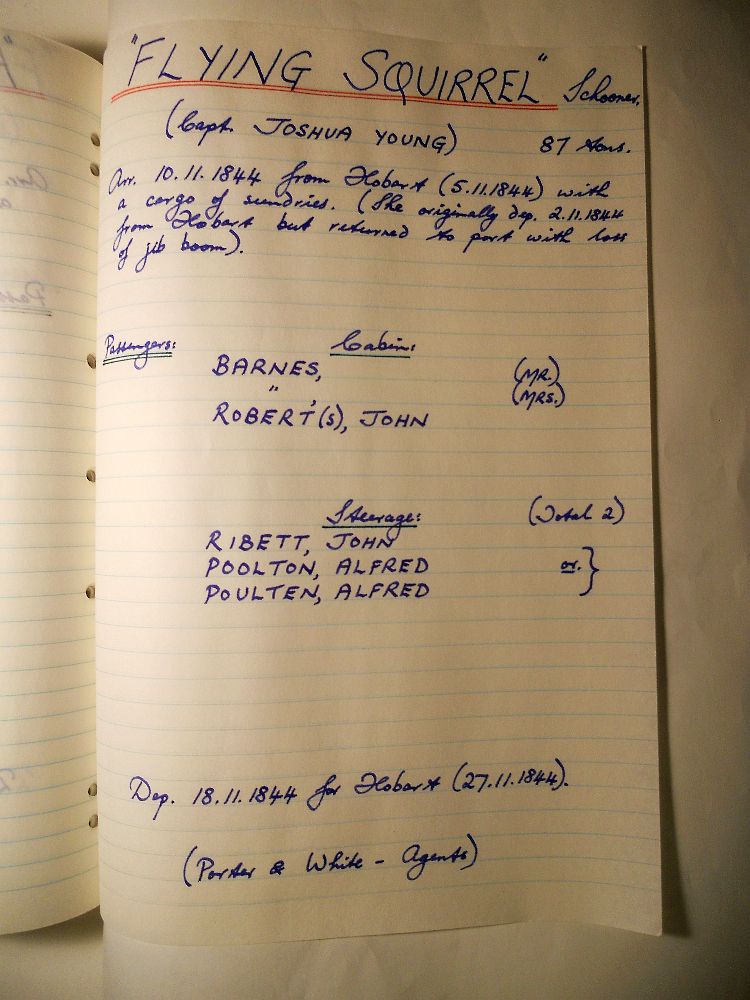 "FLYING SQUIRREL" Schooner.
(Capt. JOSHUA YOUNG) 87 tons.
Arr. 10.11.1844 from Hobart (5.11.1844) with
a cargo of sundries. (She originally dep. 2.11.1844
from Hobart but returned to port with loss
of jib boom).
Passengers: Cabin:
BARNES, (MR.)
" , (MRS.)
ROBERT(S), JOHN
Steerage: (Total 2)
RIBETT, JOHN
POOLTON, ALFRED or. }
POULTEN, ALFRED
Dep. 18.11.1844 for Hobart (27.11.1844).
(Porter & White - Agents)